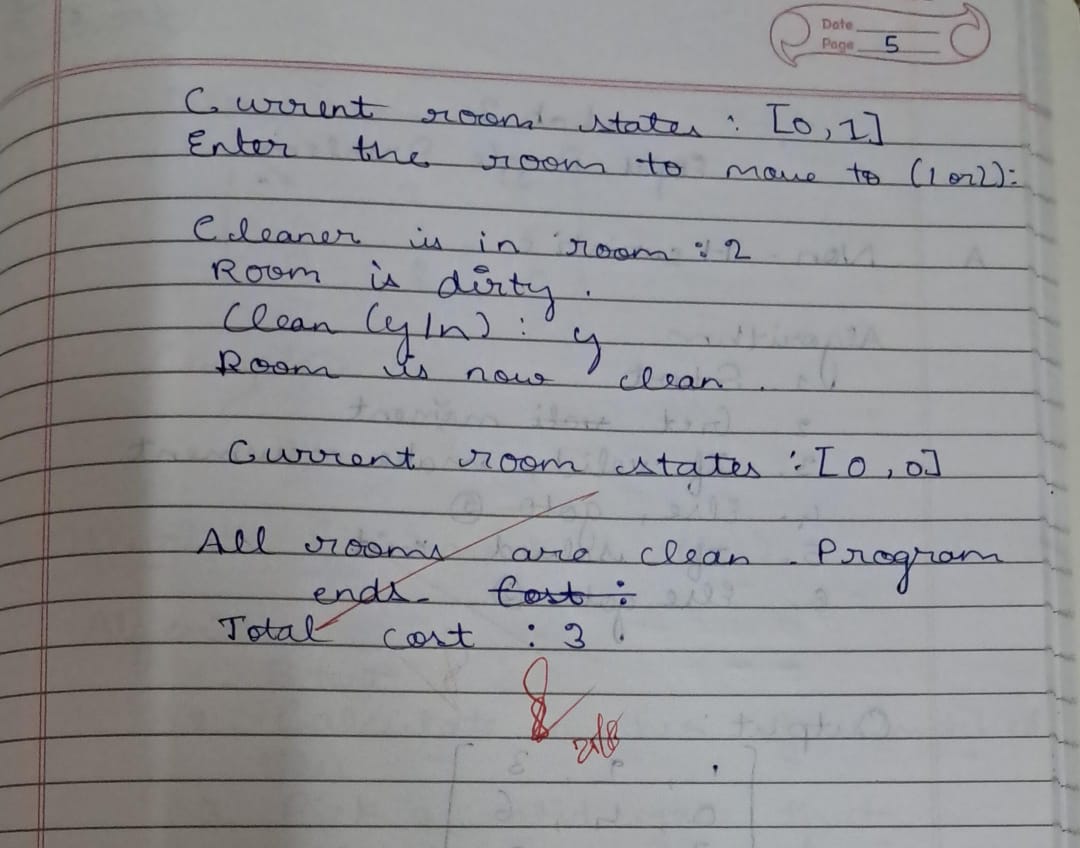 Date
Page 5
Current room states : [0,1]
Enter the room to move to (1 or 2):
Cleaner is in room : 2
Room is dirty.
Clean (y/n) : y
Room is now clean.
Current room states : [0,0]
All rooms are clean. Program
ends. Cost :
Total cost : 3.